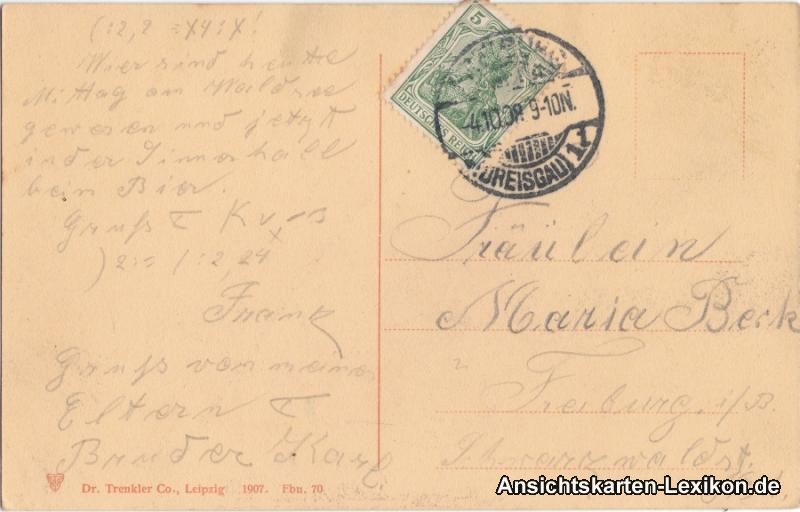 (:2,2 =X4:X!
Wier sind heute
Mittag am Waldsee
gewesen und jetzt
in der
beim Bier.
Gruß
Frank
Gruß von meinen
Eltern
Bruder Karl.
Dr. Trenkler Co., Leipzig 1907. Fbu. 70
5
DEUTSCHES REICH
-4.10.08 9-10N.
(BREISGAU) 1
Fräulein
Maria Beck
Freiburg i/B.
Schwarzwaldstr.
Ansichtskarten-Lexikon.de